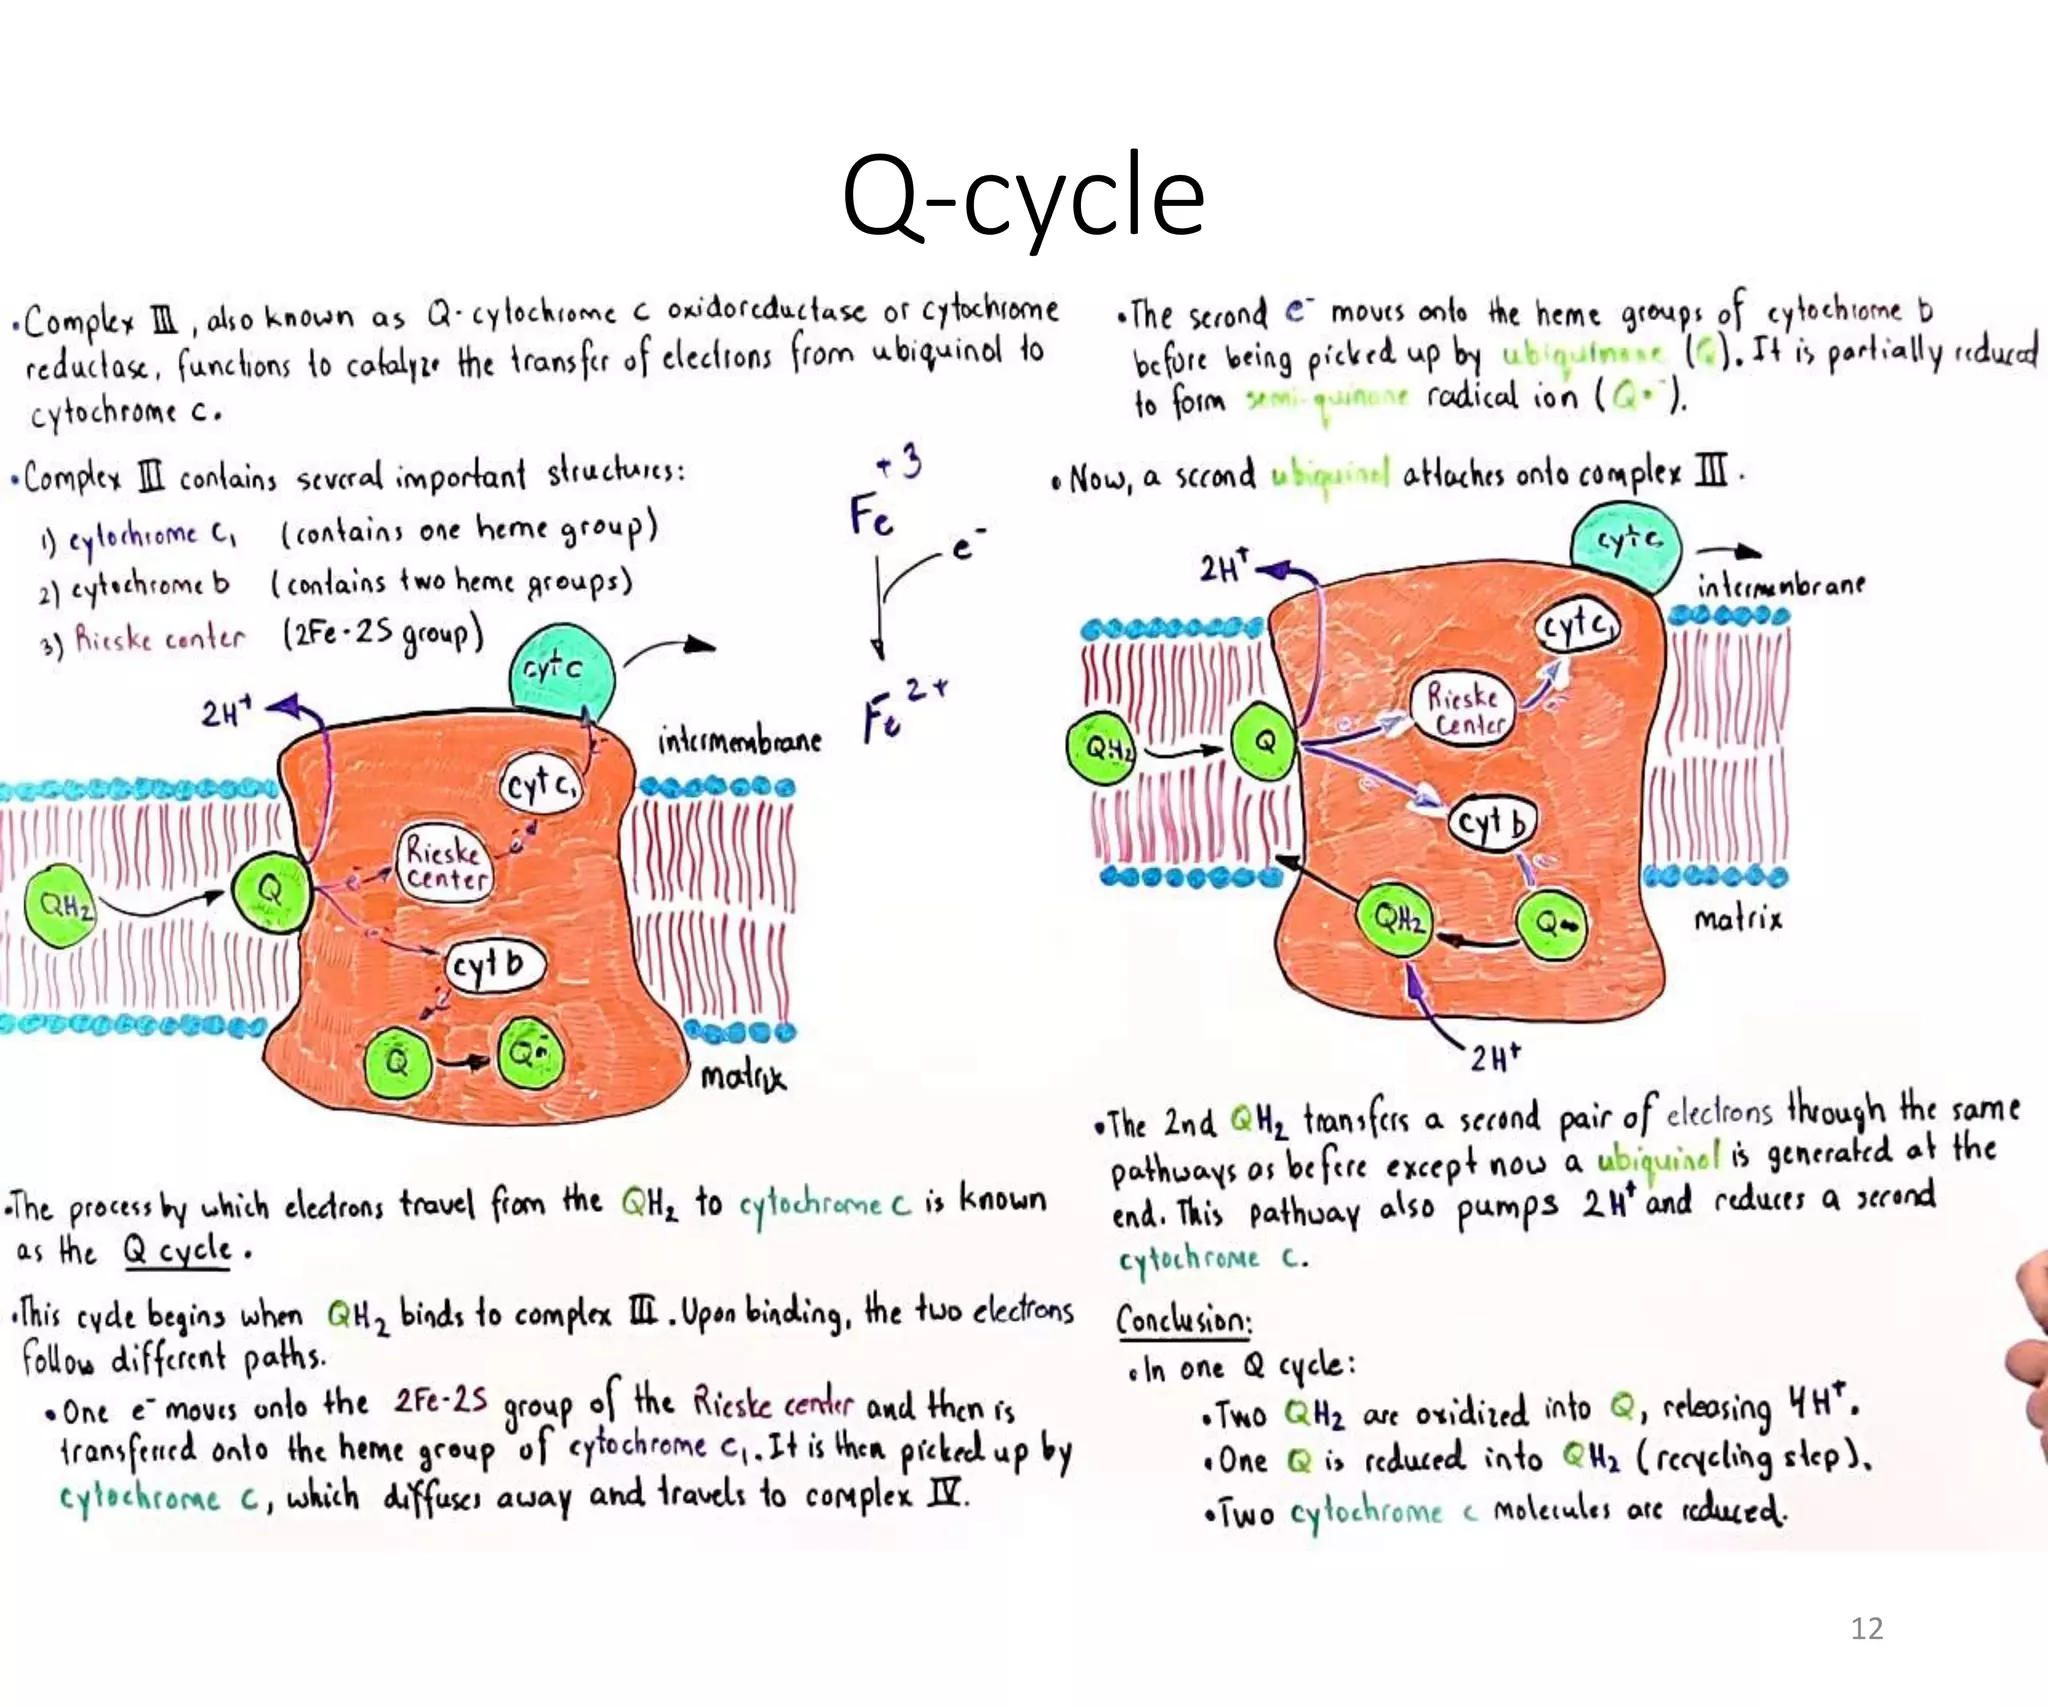 Q-cycle
•Complex III, also known as Q-cytochrome c oxidoreductase or cytochrome
reductase, functions to catalyze the transfer of electrons from ubiquinol to
cytochrome c.
•Complex III contains several important structures:
1) cytochrome c₁ (contains one heme group)
2) cytochrome b (contains two heme groups)
3) Rieske center (2Fe-2S group)
+3
Fe
e⁻
Fe 2+
2H⁺
cyt c
intermembrane
cyt c₁
Rieske
center
e⁻
e⁻
e⁻
QH₂
Q
e⁻
cyt b
e⁻
Q
Q•⁻
matrix
•The process by which electrons travel from the QH₂ to cytochrome c is known
as the Q cycle.
•This cycle begins when QH₂ binds to complex III. Upon binding, the two electrons
follow different paths.
•One e⁻ moves onto the 2Fe-2S group of the Rieske center and then is
transferred onto the heme group of cytochrome c₁. It is then picked up by
cytochrome c, which diffuses away and travels to complex IV.
•The second e⁻ moves onto the heme groups of cytochrome b
before being picked up by ubiquinone (Q). It is partially reduced
to form semi-quinone radical ion (Q•⁻).
•Now, a second ubiquinol attaches onto complex III.
2H⁺
cyt c
intermembrane
cyt c₁
Rieske
Center
e⁻
e⁻
QH₂
Q
e⁻
cyt b
e⁻
QH₂
Q•⁻
matrix
2H⁺
•The 2nd QH₂ transfers a second pair of electrons through the same
pathways as before except now a ubiquinol is generated at the
end. This pathway also pumps 2H⁺ and reduces a second
cytochrome c.
Conclusion:
•In one Q cycle:
•Two QH₂ are oxidized into Q, releasing 4H⁺.
•One Q is reduced into QH₂ (recycling step).
•Two cytochrome c molecules are reduced.
12